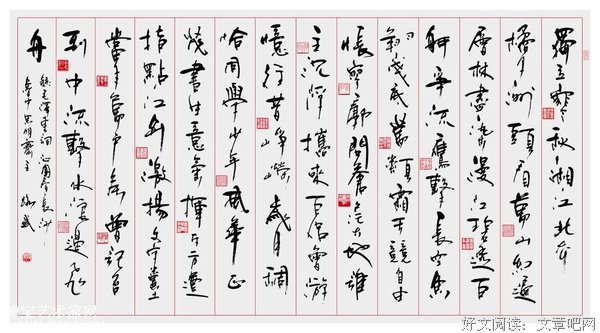 獨立寒秋湘江北去
橘子洲頭看萬山紅遍
層林盡染漫江碧透百
舸爭流鷹擊長空魚
翔淺底萬類霜天競自由
悵寥廓問蒼茫大地誰
主沉浮攜來百侶曾游
憶往昔崢嶸歲月稠
恰同學少年風華正
茂書生意氣揮斥方遒
指點江山激揚文字糞土
當年萬戶侯曾記否
到中流擊水浪遏飛
舟
毛澤東詞沁園春長沙
好文阅读：文章吧网